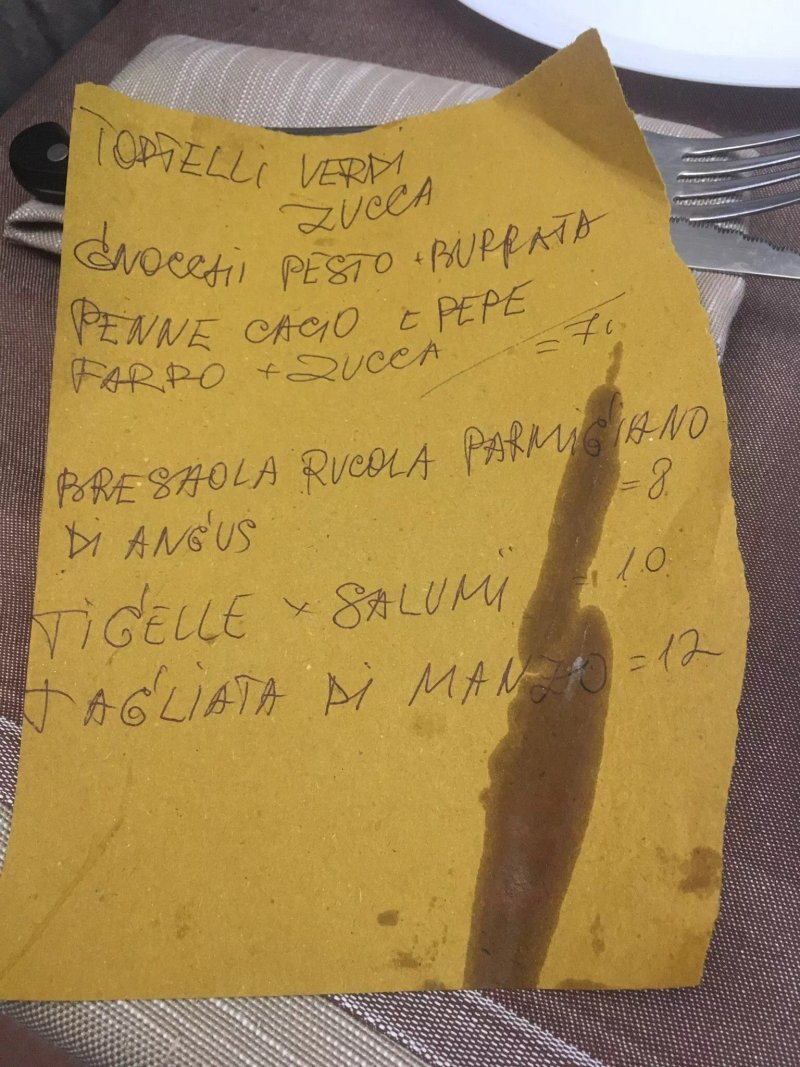 TORTELLI VERDI
ZUCCA
GNOCCHI PESTO + BURRATA
PENNE CACIO E PEPE
FARRO + ZUCCA = 7.
BRESAOLA RUCOLA PARMIGIANO
DI ANGUS = 8
TIGELLE x SALUMI = 10
TAGLIATA DI MANZO = 12